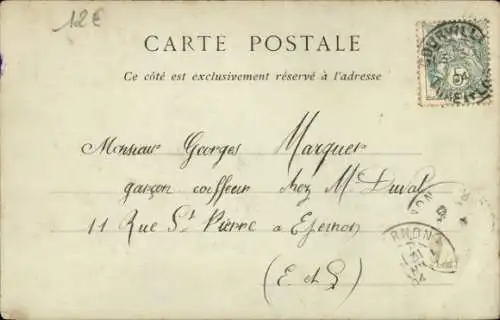 12€
CARTE POSTALE
Ce côté est exclusivement réservé à l'adresse
Monsieur Georges Marquer
garçon coiffeur chez Mr Duval
11 Rue St Pierre à Epernon
(E et L)
5
04